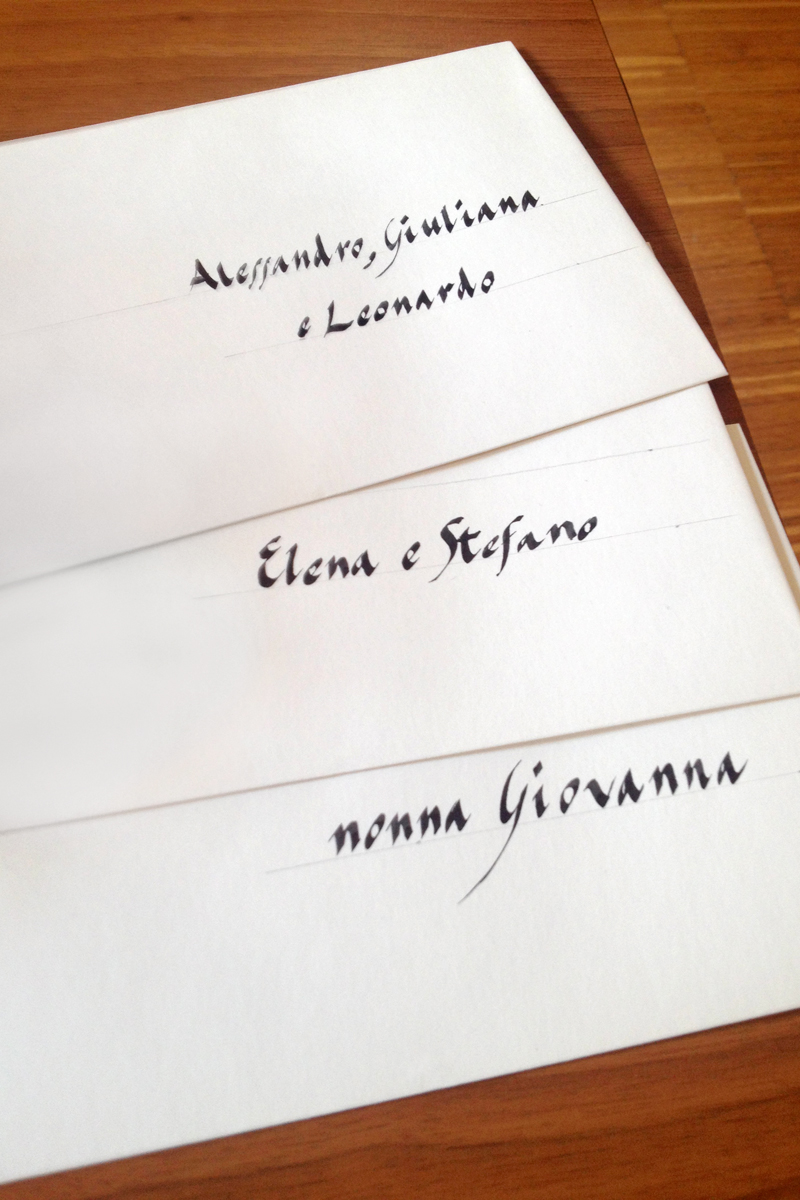 Alessandro, Giuliana
e Leonardo
Elena e Stefano
nonna Giovanna